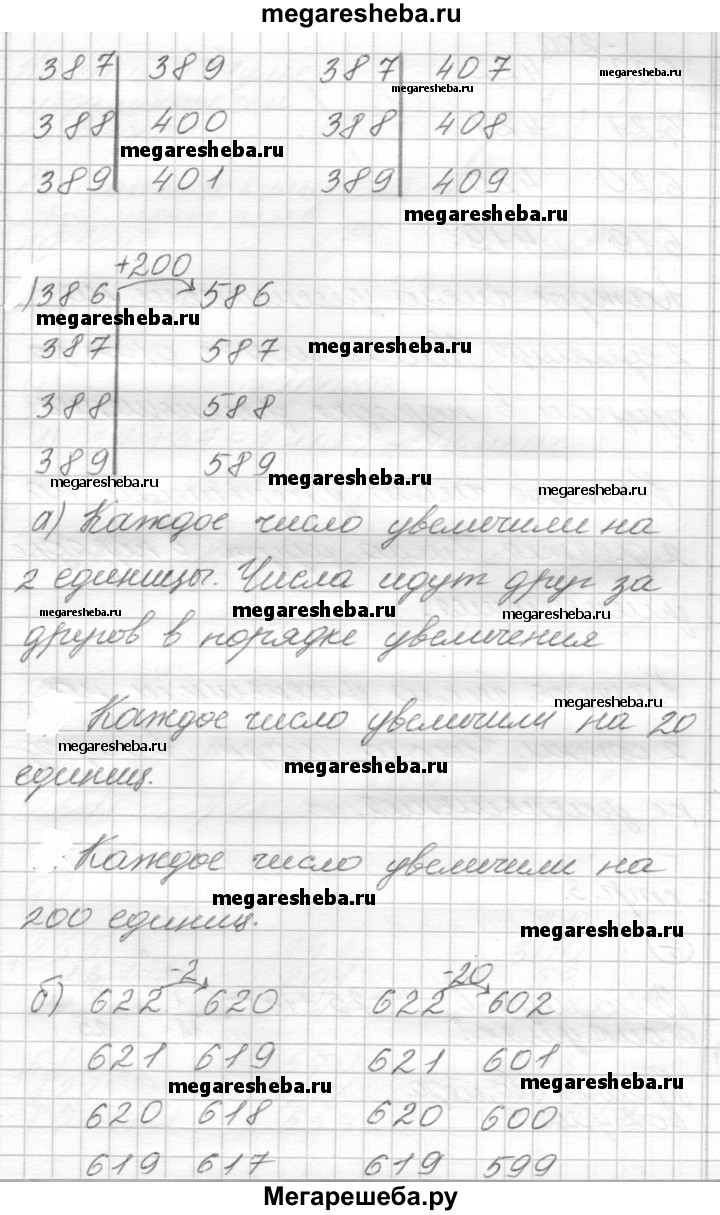 megaresheba.ru
387 389 387 407
megaresheba.ru
megaresheba.ru
388 400 388 408
megaresheba.ru
389 401 389 409
megaresheba.ru
+200
)386 586
megaresheba.ru
387 587
megaresheba.ru
388 588
389 589
megaresheba.ru
megaresheba.ru
megaresheba.ru
а) Каждое число увеличили на
2 единицы. Числа идут друг за
megaresheba.ru
megaresheba.ru
megaresheba.ru
другов в порядке увеличения
megaresheba.ru
Каждое число увеличили на 20
megaresheba.ru
единиц.
megaresheba.ru
Каждое число увеличили на
megaresheba.ru
200 единиц.
megaresheba.ru
-2 -20
б) 622 620 622 602
621 619 621 601
megaresheba.ru
megaresheba.ru
620 618 620 600
619 617 619 599
Мегарешеба.ру